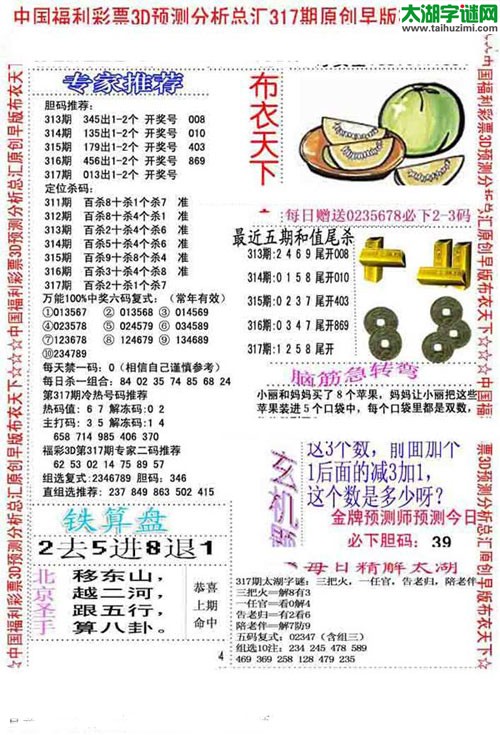 中国福利彩票3D预测分析总汇317期原创早版
太湖字谜网
www.taihuzimi.com
中国福利彩票3D预测分析总汇原创早版布衣天下☆☆☆
专家推荐
胆码推荐:
313期 345出1-2个 开奖号 008
314期 135出1-2个 开奖号 010
315期 179出1-2个 开奖号 403
316期 456出1-2个 开奖号 869
317期 013出1-2个 开奖号
定位杀码:
311期 百杀8十杀1个杀7 准
312期 百杀7十杀4个杀1 准
313期 百杀9十杀6个杀5 准
314期 百杀2十杀9个杀4 准
315期 百杀6十杀1个杀7 准
316期 百杀3十杀4个杀8 准
317期 百杀2十杀1个杀7
万能100%中奖六码复式:(常年有效)
①013567 ②013568 ③014569
④023578 ⑤024579 ⑥034689
⑦123678 ⑧124679 ⑨134689
⑩234789
每天禁一码: 0(相信自己谨慎参考)
每日杀一组合: 84 02 35 74 85 68 24
第317期冷热号码推荐
热码值: 6 7 解冻码:0 2
主打码: 3 5 解冻码:1 4
658 714 985 406 370
福彩3D第317期专家二码推荐
62 53 02 14 75 89 57
组选复式:2346789 胆码: 346
直组选推荐: 237 849 863 502 415
铁算盘
2去5进8退1
北京圣手
移东山,
越二河,
跟五行,
算八卦。
恭喜
上期
命中
4
布衣天下
每日赠送0235678必下2-3码
最近五期和值尾杀
313期:2 4 6 9 尾开008
314期:0 1 5 8 尾开010
315期:0 2 3 7 尾开403
316期:0 3 4 7 尾开869
317期:1 2 5 8 尾开
脑筋急转弯
小丽和妈妈买了8个苹果,妈妈让小丽把这些
苹果装进5个口袋中,每个口袋里都是双数,
玄机
这3个数,前面加个
1后面的减3加1,
这个数是多少呀?
金牌预测师预测今日
必下胆码: 39
每日精解太湖
317期太湖字谜:三把火,一任官,告老归,陪老伴
三把火=解8有3
一任官=看0解4
告老归=有2看6
陪老伴=解7防9
五码复式:02347(含组三)
组选10注: 234 245 478 589
469 369 258 128 479 235